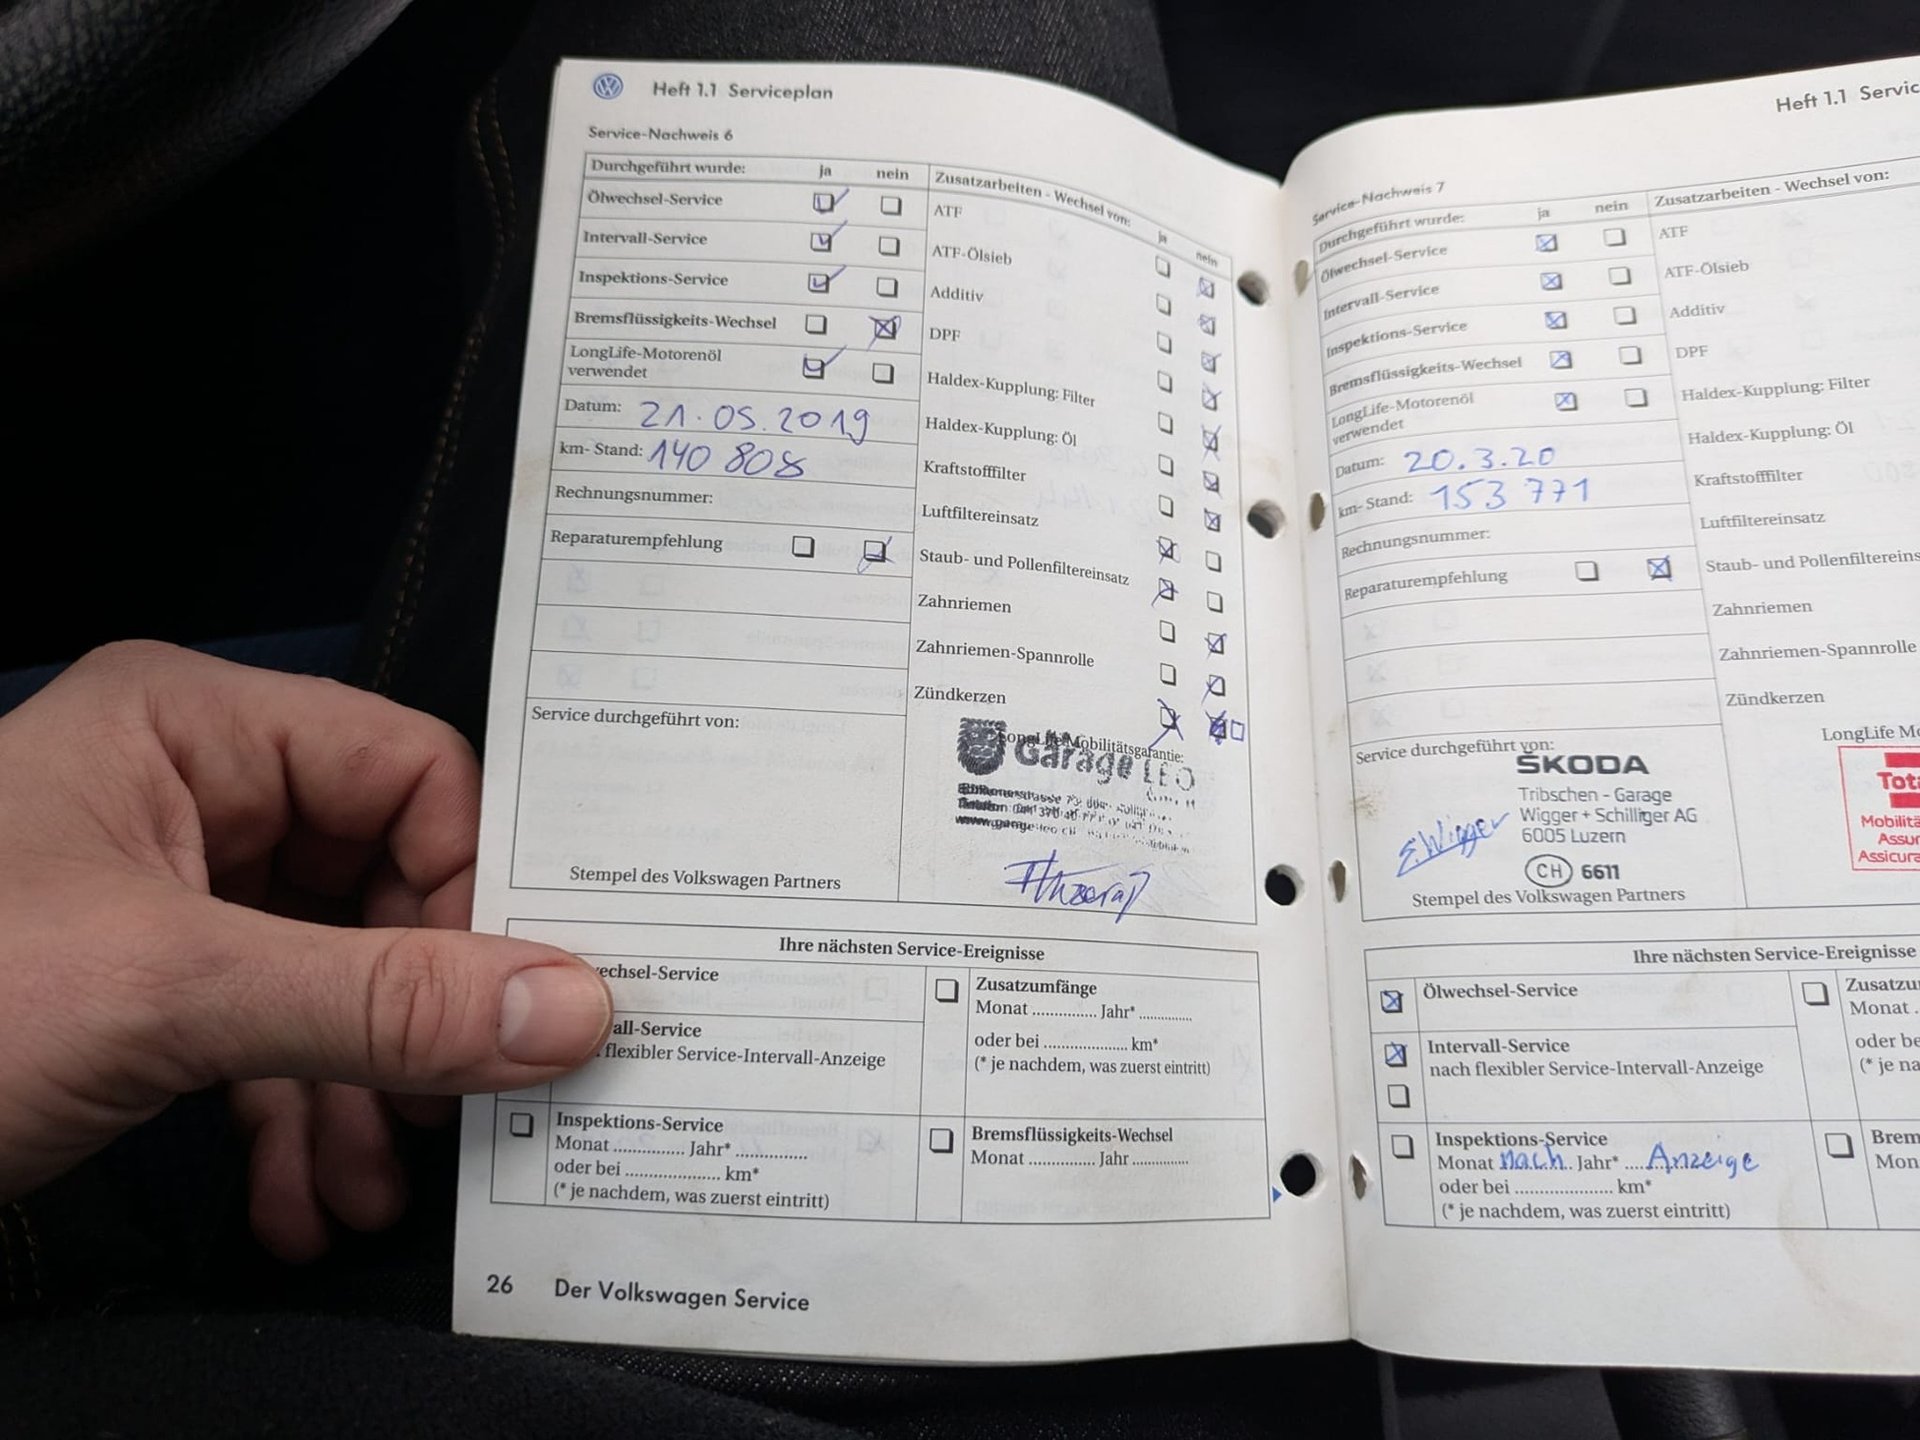 Heft 1.1 Serviceplan
Service-Nachweis 6
Durchgeführt wurde: ja nein
Ölwechsel-Service
Intervall-Service
Inspektions-Service
Bremsflüssigkeits-Wechsel
LongLife-Motorenöl
verwendet
Datum: 21.05.2019
km- Stand: 140 808
Rechnungsnummer:
Reparaturempfehlung
Zusatzarbeiten - Wechsel von:
ja nein
ATF
ATF-Ölsieb
Additiv
DPF
Haldex-Kupplung: Filter
Haldex-Kupplung: Öl
Kraftstofffilter
Luftfiltereinsatz
Staub- und Pollenfiltereinsatz
Zahnriemen
Zahnriemen-Spannrolle
Zündkerzen
Service durchgeführt von:
LongLife Mobilitätsgarantie:
Garage LEO
Stempel des Volkswagen Partners
Ihre nächsten Service-Ereignisse
echsel-Service
all-Service
flexibler Service-Intervall-Anzeige
Inspektions-Service
Monat ............... Jahr* ...............
oder bei .................... km*
(* je nachdem, was zuerst eintritt)
Zusatzumfänge
Monat .............. Jahr* ............
oder bei .................. km*
(* je nachdem, was zuerst eintritt)
Bremsflüssigkeits-Wechsel
Monat .............. Jahr .............
26 Der Volkswagen Service
Heft 1.1 Servic
Service-Nachweis 7
Durchgeführt wurde: ja nein
Ölwechsel-Service
Intervall-Service
Inspektions-Service
Bremsflüssigkeits-Wechsel
LongLife-Motorenöl
verwendet
Datum: 20.3.20
km- Stand: 153 771
Rechnungsnummer:
Reparaturempfehlung
Zusatzarbeiten - Wechsel von:
ATF
ATF-Ölsieb
Additiv
DPF
Haldex-Kupplung: Filter
Haldex-Kupplung: Öl
Kraftstofffilter
Luftfiltereinsatz
Staub- und Pollenfiltereins
Zahnriemen
Zahnriemen-Spannrolle
Zündkerzen
Service durchgeführt von:
ŠKODA
Tribschen - Garage
Wigger + Schilliger AG
6005 Luzern
E. Wigger
CH 6611
Stempel des Volkswagen Partners
LongLife Mo
Tota
Mobilitä
Assur
Assicura
Ihre nächsten Service-Ereignisse
Ölwechsel-Service
Intervall-Service
nach flexibler Service-Intervall-Anzeige
Inspektions-Service
Monat nach Jahr* Anzeige
oder bei .................... km*
(* je nachdem, was zuerst eintritt)
Zusatzu
Monat .
oder be
(* je na
Brem
Mon